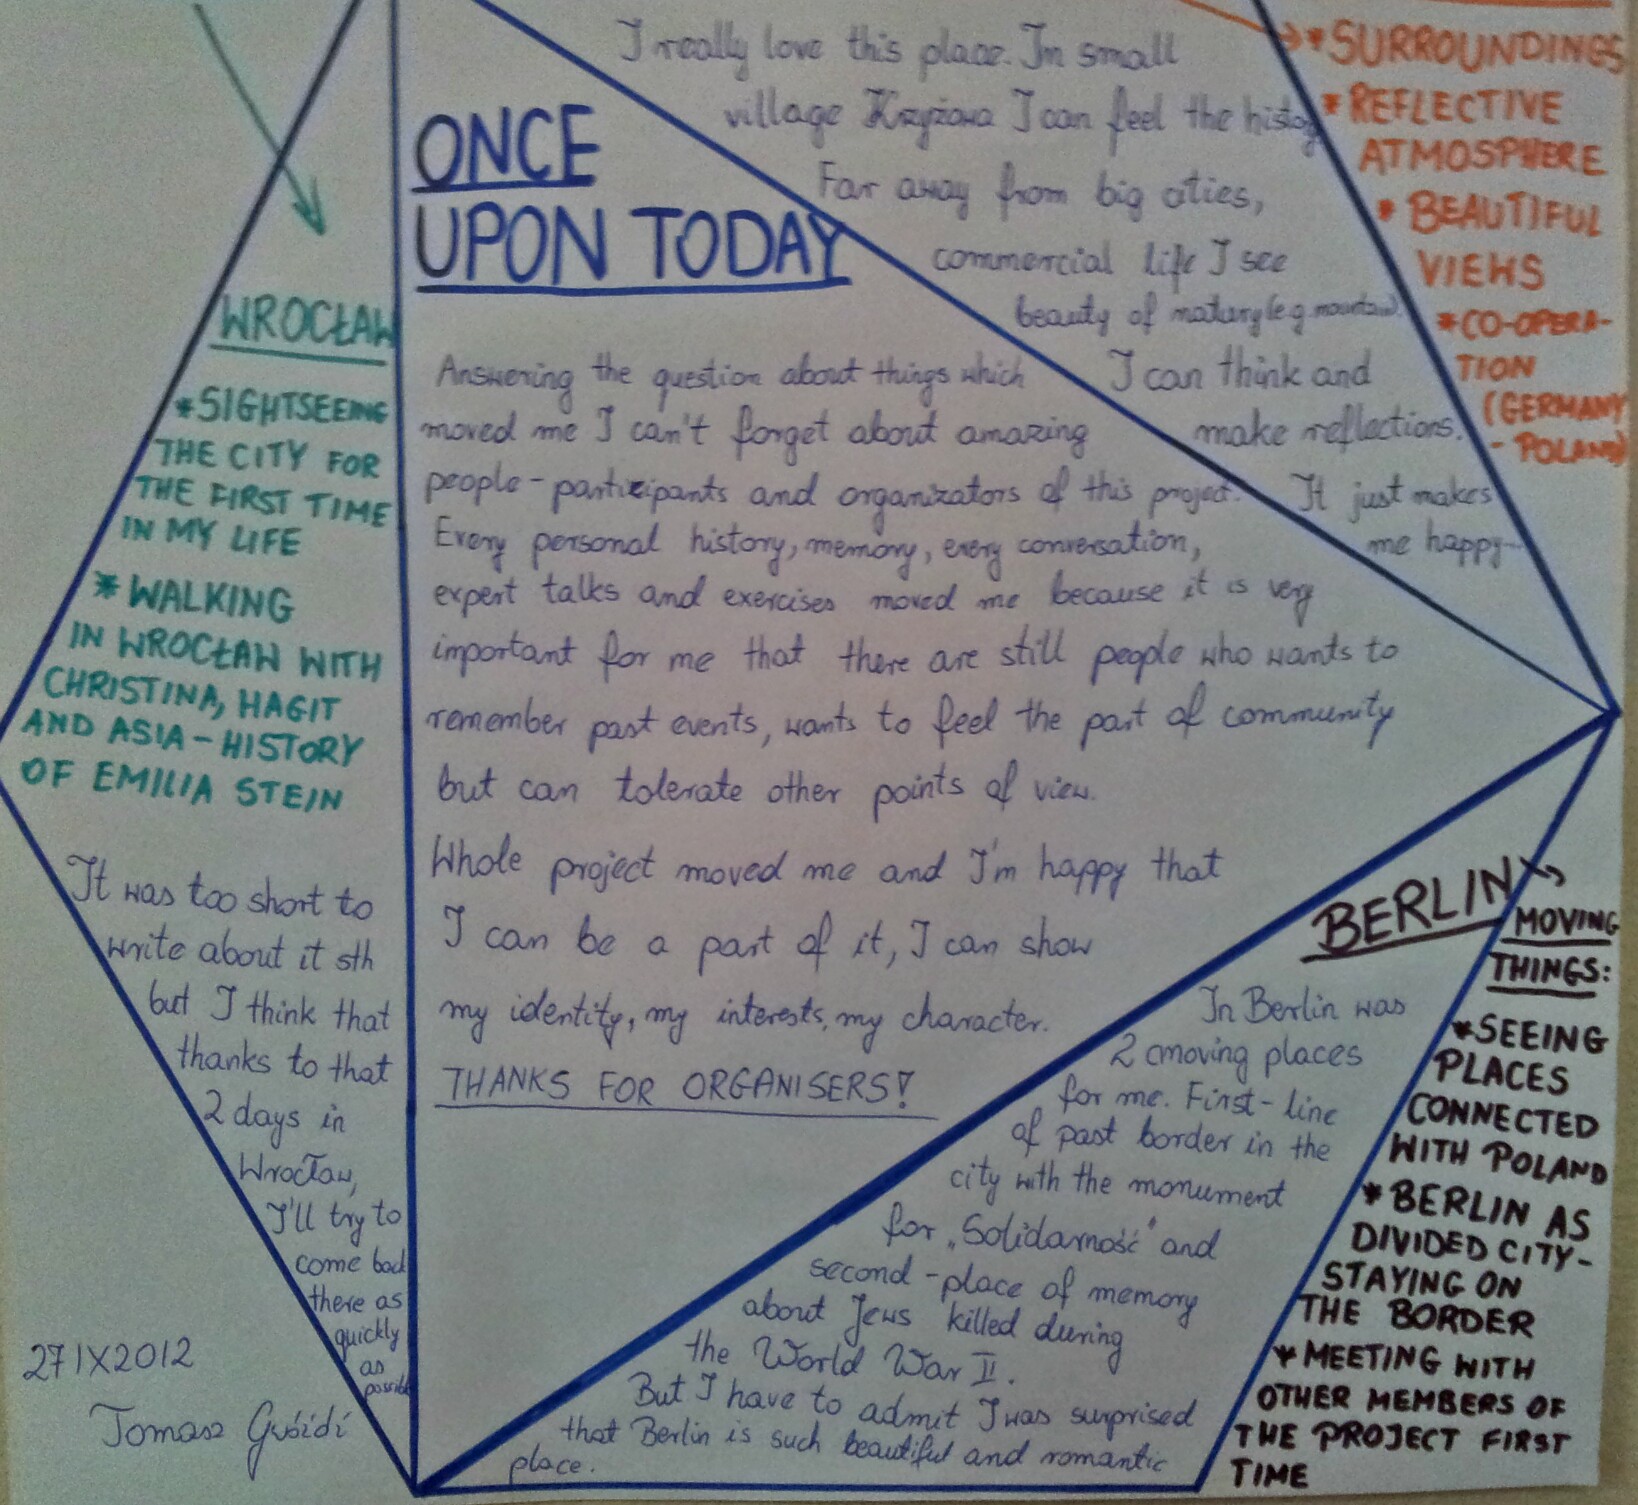 I really love this place. In small
village Krzyżowa I can feel the history
Far away from big cities,
commercial life I see
beauty of natury (e.g. mountain).
I can think and
make reflections.
It just makes
me happy
* SURROUNDINGS
* REFLECTIVE
ATMOSPHERE
* BEAUTIFUL
VIEWS
* CO-OPERA-
TION
(GERMANY
- POLAND)
ONCE
UPON TODAY
Answering the question about things which
moved me I can't forget about amazing
people - participants and organizators of this project.
Every personal history, memory, every conversation,
expert talks and exercises moved me because it is very
important for me that there are still people who wants to
remember past events, wants to feel the part of community
but can tolerate other points of view.
Whole project moved me and I'm happy that
I can be a part of it, I can show
my identity, my interests, my character.
THANKS FOR ORGANISERS!
WROCŁAW
* SIGHTSEEING
THE CITY FOR
THE FIRST TIME
IN MY LIFE
* WALKING
IN WROCŁAW WITH
CHRISTINA, HAGIT
AND ASIA - HISTORY
OF EMILIA STEIN
It was too short to
write about it sth
but I think that
thanks to that
2 days in
Wrocław,
I'll try to
come back
there as
quickly
as
possible
BERLIN
MOVING
THINGS:
* SEEING
PLACES
CONNECTED
WITH POLAND
* BERLIN AS
DIVIDED CITY-
STAYING ON
THE BORDER
* MEETING WITH
OTHER MEMBERS OF
THE PROJECT FIRST
TIME
In Berlin was
2 moving places
for me. First - line
of past border in the
city with the monument
for „Solidarność" and
second - place of memory
about Jews killed during
the World War II.
But I have to admit I was surprised
that Berlin is such beautiful and romantic
place.
27 IX 2012
Tomasz